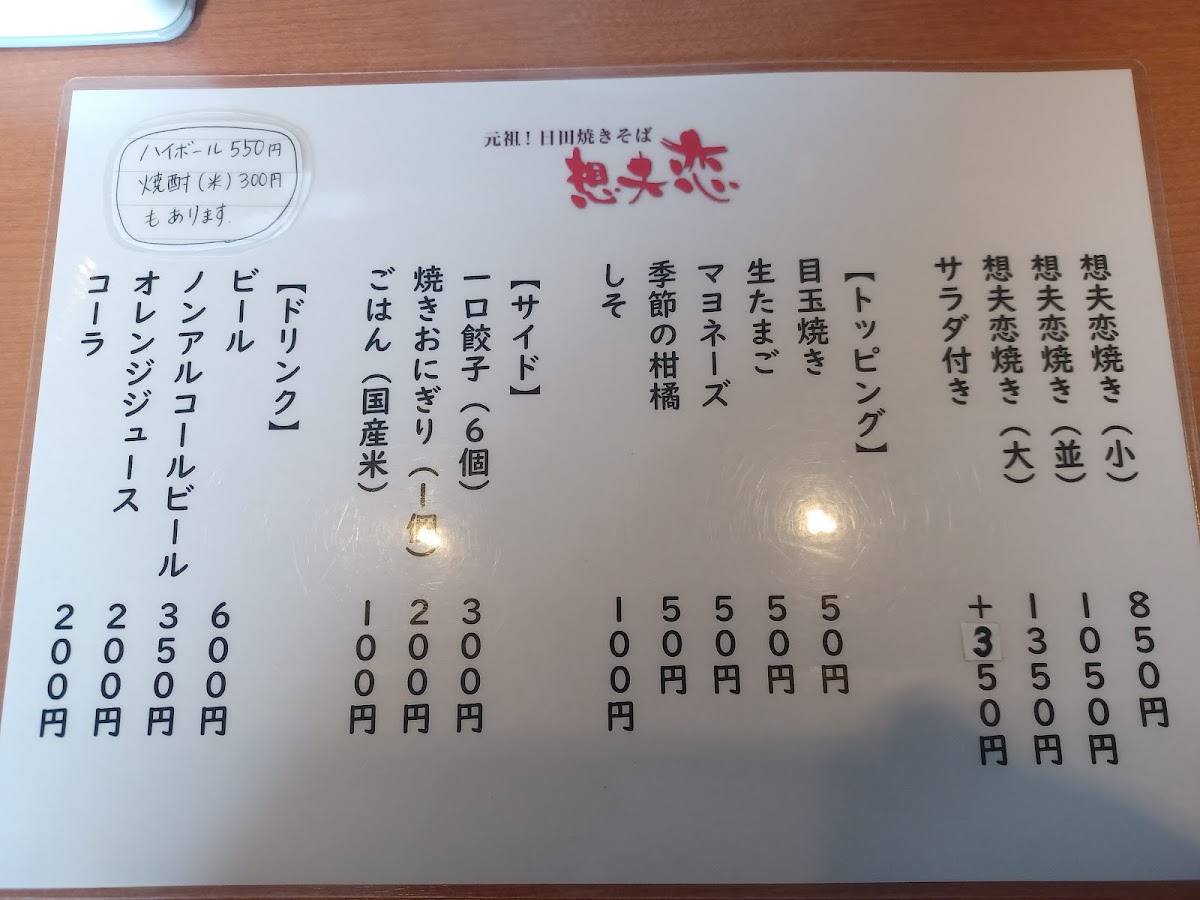 元祖！日田焼きそば
想夫恋
ハイボール 550円
焼酎(米) 300円
もあります.
想夫恋焼き（小） 850円
想夫恋焼き（並） 1050円
想夫恋焼き（大） 1350円
サラダ付き +350円
【トッピング】
目玉焼き 50円
生たまご 50円
マヨネーズ 50円
季節の柑橘 50円
しそ 100円
【サイド】
一口餃子（6個） 300円
焼きおにぎり（1個） 200円
ごはん（国産米） 100円
【ドリンク】
ビール 600円
ノンアルコールビール 350円
オレンジジュース 200円
コーラ 200円